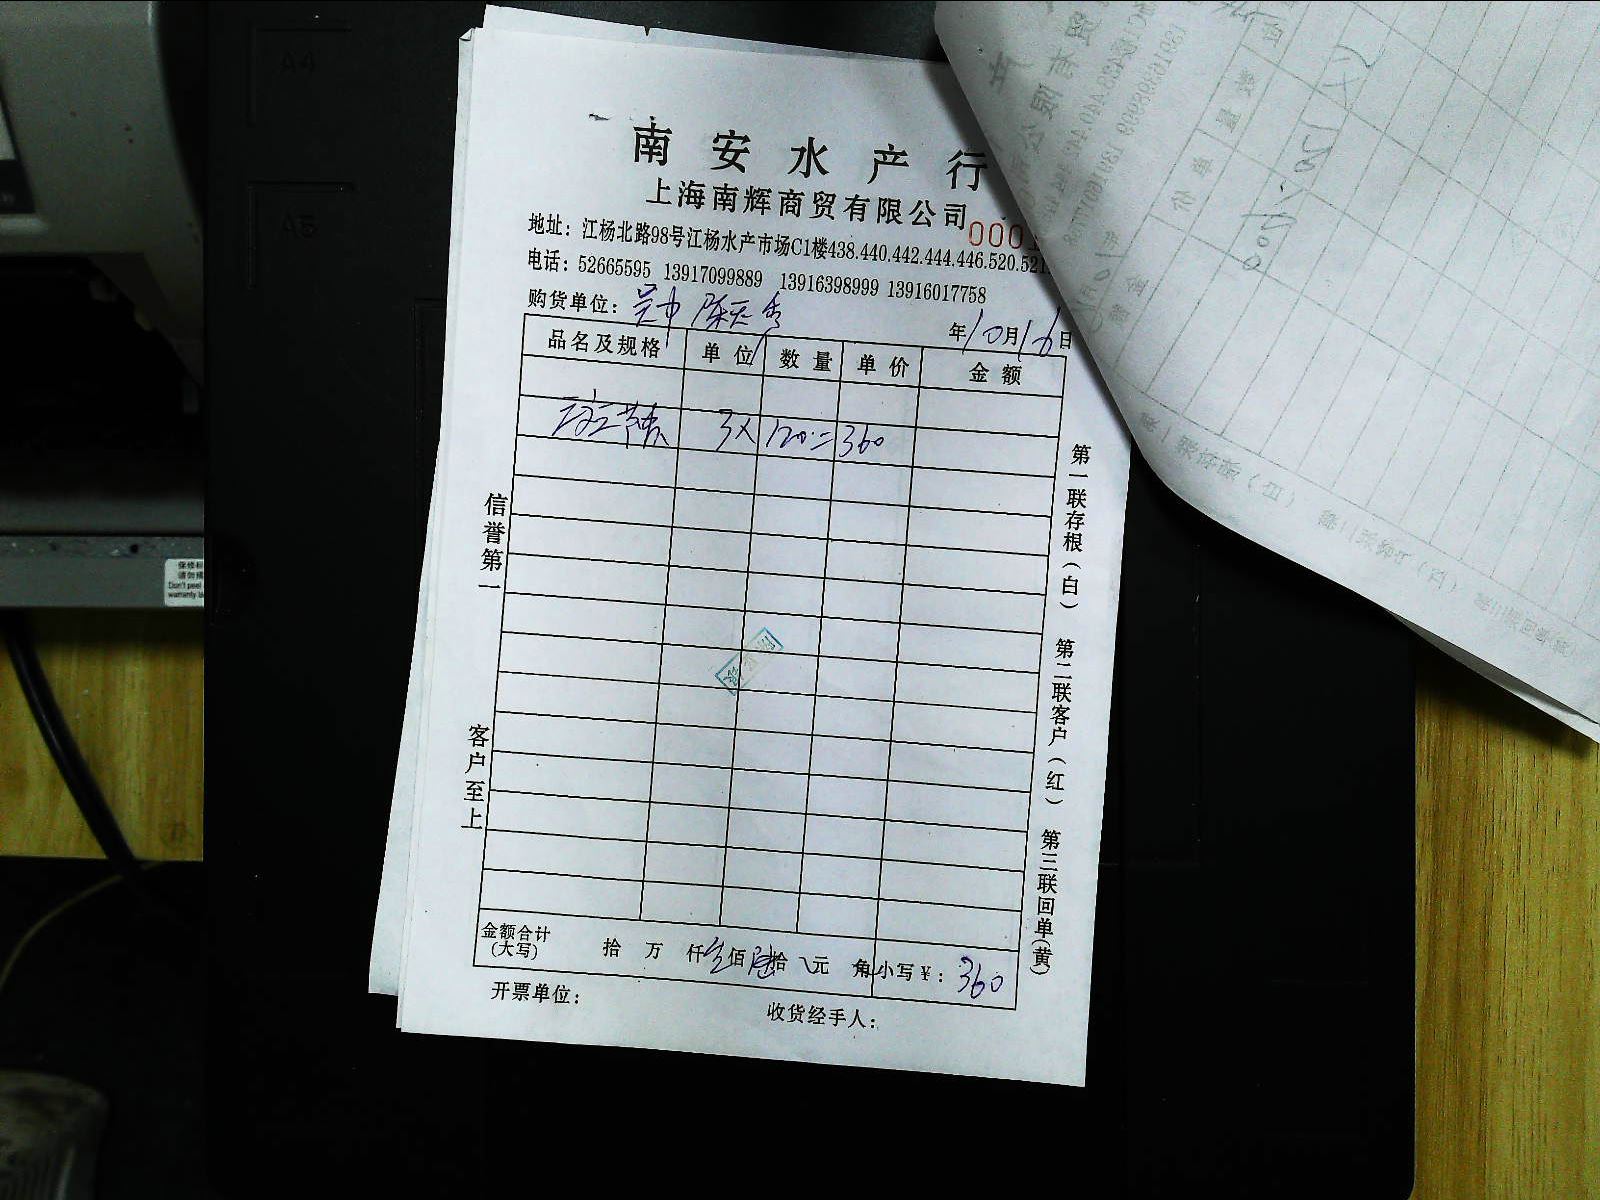 南安水产行
上海南辉商贸有限公司
000
地址：江杨北路98号江杨水产市场C1楼438.440.442.444.446.520.521
电话：52665595 13917099889 13916398999 13916017758
购货单位：吴中
年10月16日
品名及规格 单位 数量 单价 金额
斑节 3× 120.=360
信誉第一
客户至上
第一联存根（白） 第二联客户（红） 第三联回单(黄)
金额合计(大写) 拾 万 仟叁佰陆拾 元 角 小写￥：360
开票单位：
收货经手人：
A4
A5
保修标
请勿撕
Don't peel
warranty la